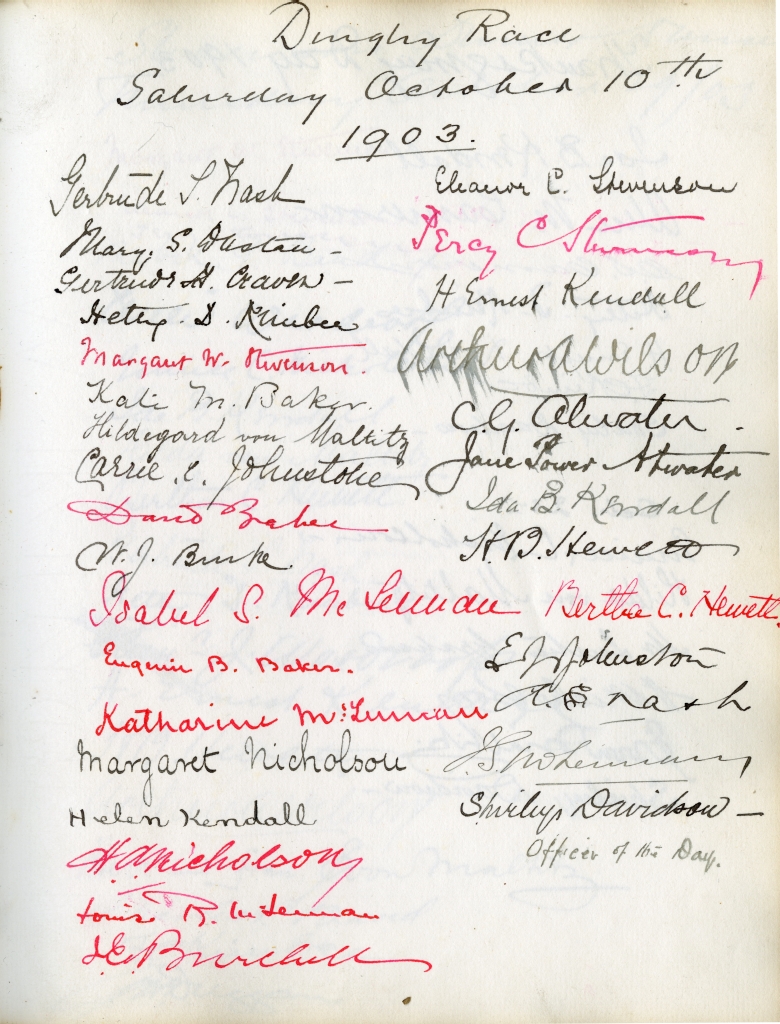 Dinghy Race
Saturday October 10th
1903.
Gertrude S. Nash
Mary S.
Gertrude H. Craven -
Hetty D. Kimber
Margaret W. Stevenson.
Kate M. Baker.
Hildegard von Maltitz
Carrie E. Johnstone
David Baker
W. J. Burke.
Isabel S. McLennan
Eugenie B. Baker.
Katharine McLennan
Margaret Nicholson
Helen Kendall
H. A. Nicholson
Louise R. McLennan
Burchell
Eleanor C. Stevenson
Percy C Stevenson
H Ernest Kendall
Arthur A Wilson
C. G. Atwater.
Jane Power Atwater
Ida B. Kendall
H. B. Hewett
Bertha C. Hewett.
E Johnston
Nash
J. S. McLennan
Shirley Davidson -
Officer of the Day.